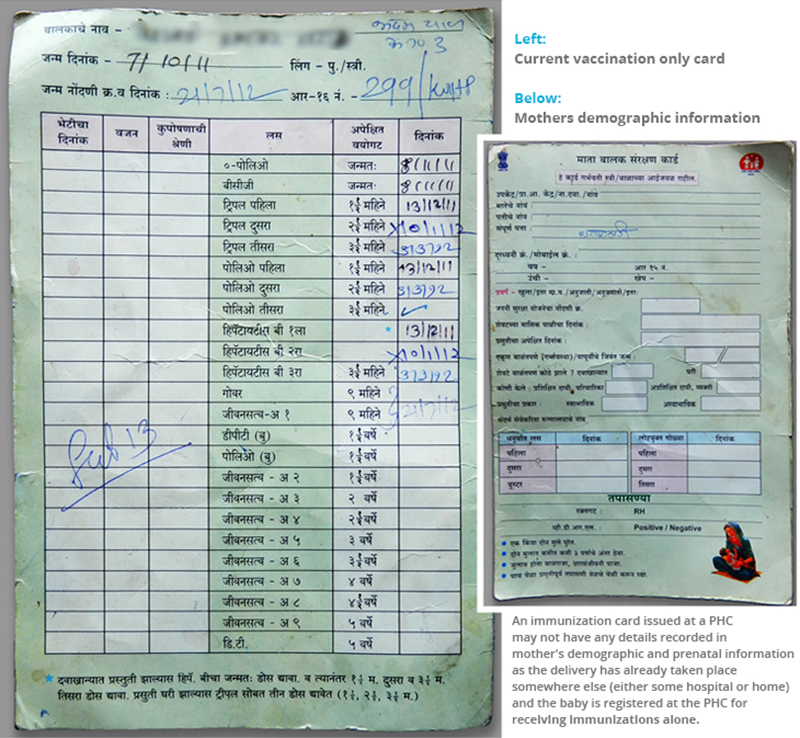 बालकाचे नाव -
जन्म दिनांक - 7/10/11 लिंग - पु./स्त्री.
जन्म नोंदणी क्र.व दिनांक : 21/7/12 आर-१६ नं. - 299/
भेटीचा दिनांक वजन कुपोषणाची श्रेणी लस अपेक्षित वयोगट दिनांक
०-पोलिओ जन्मतः 8/11/11
बीसीजी जन्मतः 8/11/11
ट्रिपल पहिला १½ महिने 13/12/11
ट्रिपल दुसरा २½ महिने 10/1/12
ट्रिपल तीसरा ३½ महिने 3/3/12
पोलिओ पहिला १½ महिने 13/12/11
पोलिओ दुसरा २½ महिने 3/3/12
पोलिओ तीसरा ३½ महिने
हिपॅटायटीस बी १ला * 13/12/11
हिपॅटायटीस बी २रा 10/1/12
हिपॅटायटीस बी ३रा ३½ महिने 3/3/12
गोवर ९ महिने
जीवनसत्व-अ १ ९ महिने 21/7/12
डीपीटी (बु) १½ वर्षे
पोलिओ (बु) १½ वर्षे
जीवनसत्व - अ २ १½ वर्षे
जीवनसत्व - अ ३ २ वर्षे
जीवनसत्व - अ ४ २½ वर्षे
जीवनसत्व - अ ५ ३ वर्षे
जीवनसत्व - अ ६ ३½ वर्षे
जीवनसत्व - अ ७ ४ वर्षे
जीवनसत्व - अ ८ ४½ वर्षे
जीवनसत्व - अ ९ ५ वर्षे
डि.टी. ५ वर्षे
* दवाखान्यात प्रस्तुती झाल्यास हिपॅ. बीचा जन्मतः डोस द्यावा. व त्यानंतर १½ म. दुसरा व ३½ म.
तिसरा डोस द्यावा. प्रसुती घरी झाल्यास ट्रीपल सोबत तीन डोस द्यावेत (१½, २½, ३½ म.)
Left:
Current vaccination only card
Below:
Mothers demographic information
माता बालक संरक्षण कार्ड
हे कार्ड गर्भवती स्त्री/बाळाच्या आईजवळ राहील.
उपकेंद्र/प्रा.आ. केंद्र/ना.दवा./गांव
मातेचे नांव :
पतीचे नांव :
संपूर्ण पत्ता :
दूरध्वनी क्र./मोबाईल क्र. :
वय - आर १५ नं.
उंची - खेप -
प्रवर्ग - खुला/इतर मा.व./अनुजाती/अनुजमाती/इतर:
जननी सुरक्षा योजनेचा नोंदणी क्र.
शेवटच्या मासिक पाळीचा दिनांक :
प्रसुतीचा अपेक्षित दिनांक :
एकूण बाळंतपणे (गर्भावस्था)/यापूर्वीचे जिवंत जन्म :
शेवटे बाळंतपण कोठे झाले ? दवाखान्यात घरी
कोणी केले : प्रशिक्षित दायी, परिचारिका अप्रशिक्षित दायी, व्यक्ती
प्रसुतीचा प्रकार : स्वाभाविक अस्वाभाविक
संदर्भ सेवेकरिता रूग्णालयाचे नाव
धनुर्वात लस दिनांक लोहयुक्त गोळ्या दिनांक
पहिला पहिला
दुसरा दुसरा
बुस्टर तिसरा
तपासण्या
रक्तगट : RH
व्ही.डी.आर.एल. : Positive / Negative
• एक किंवा दोन मुले पुरेत.
• दोन मुलात कमीत कमी ३ वर्षांचे अंतर ठेवा.
An immunization card issued at a PHC
may not have any details recorded in
mother's demographic and prenatal information
as the delivery has already taken place
somewhere else (either some hospital or home)
and the baby is registered at the PHC for
receiving immunizations alone.